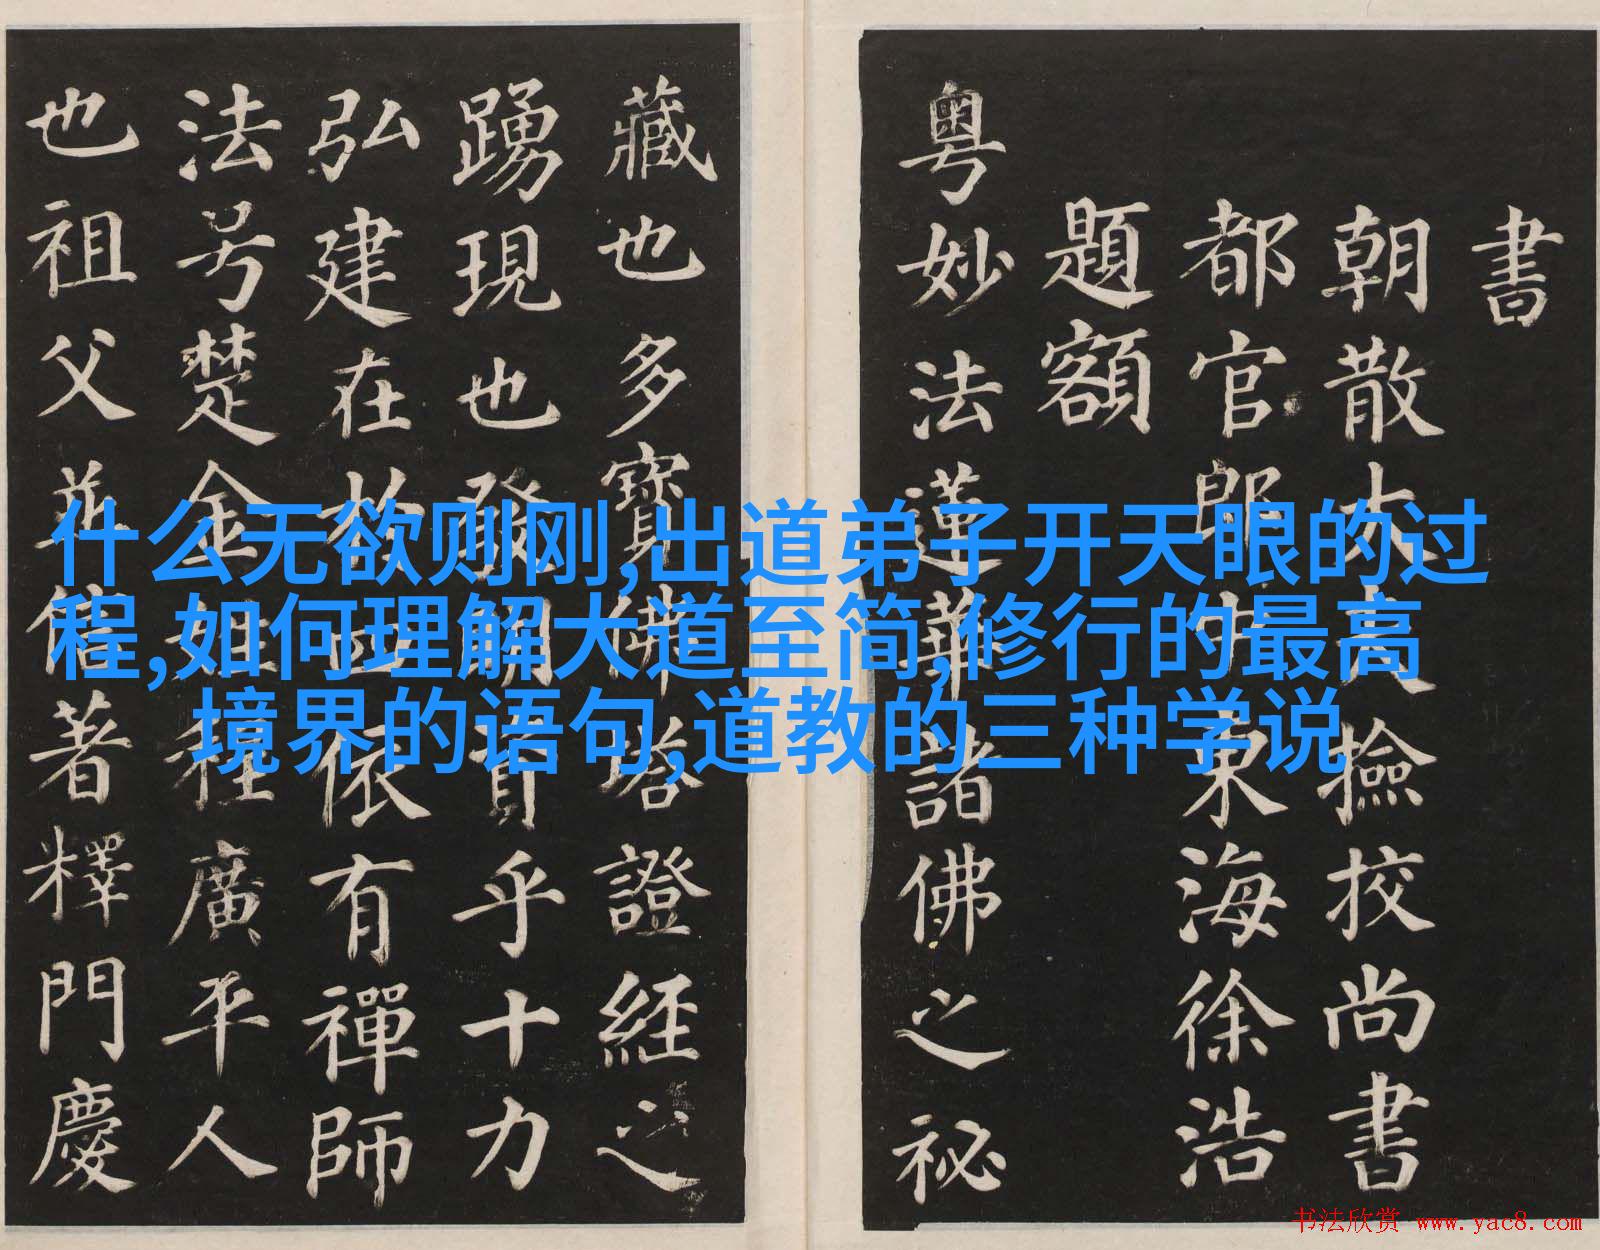 书
朝散大夫撿挍尚書
都官郎中東海徐浩
題額
粵妙法蓮華諸佛之秘
藏也多寶佛塔證經之
踴現也發明資乎十力
弘建在於四依有禪師
法号楚金姓程廣平人
也祖父並信著釋門慶
什么无欲则刚,出道弟子开天眼的过
程,如何理解大道至简,修行的最高
境界的语句,道教的三种学说
书法欣赏 www.yac8.com